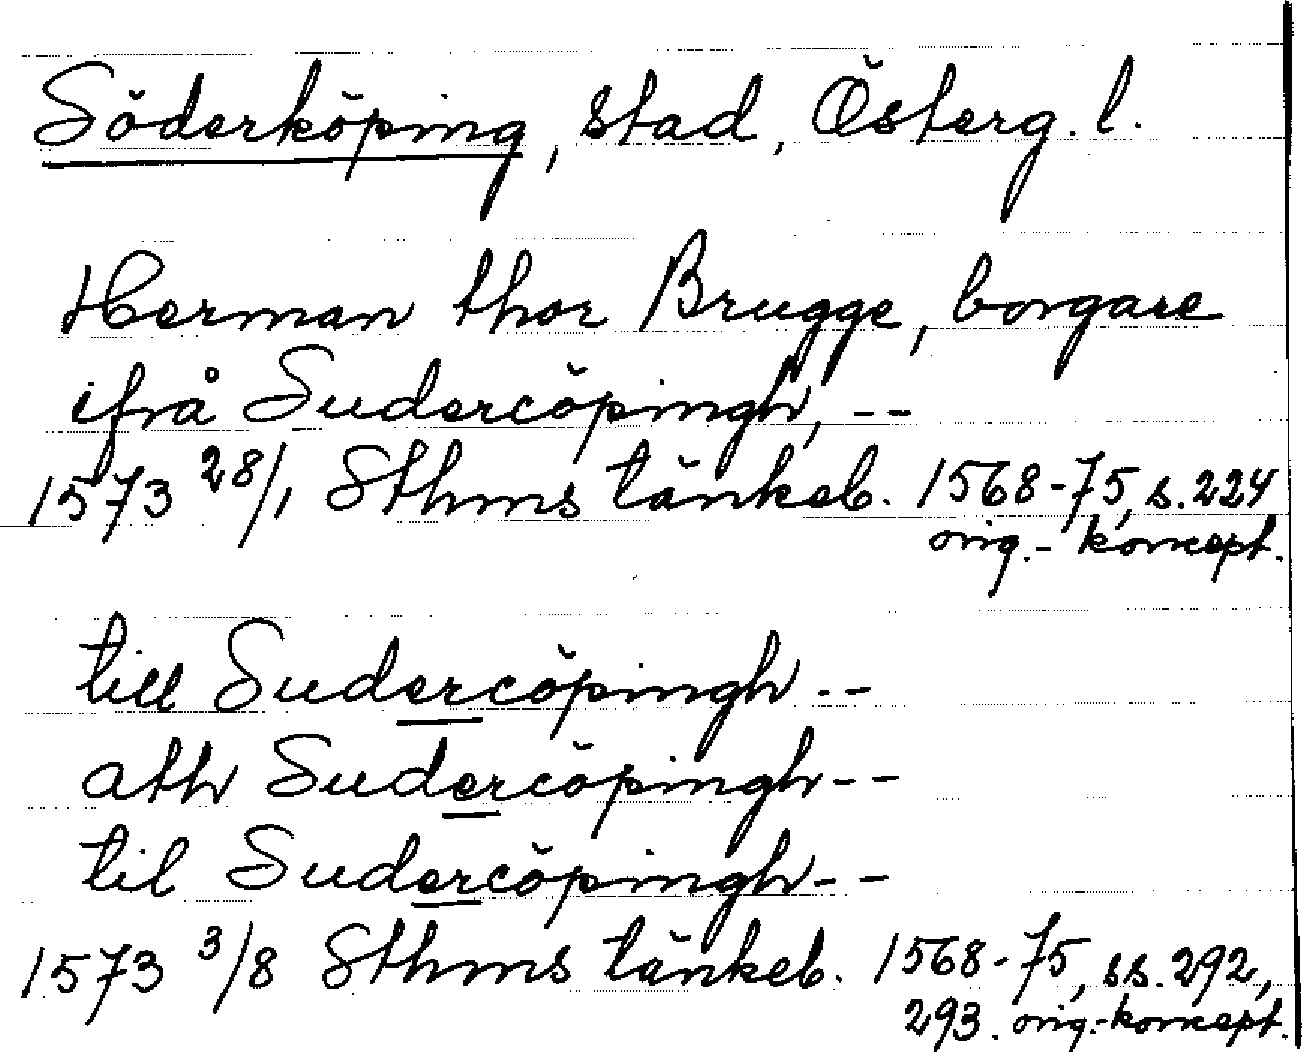 Söderköping, stad, Österg. l.
Herman thor Brugge, borgare
ifrå Sudercöpingh, --
1573 28/1 Sthms tänkeb. 1568-75, s. 224
orig.- koncept.
till Sudercöpingh --
ath Sudercöpingh --
til Sudercöpingh --
1573 3/8 Sthms tänkeb. 1568-75, ss. 292,
293. orig.-koncept.